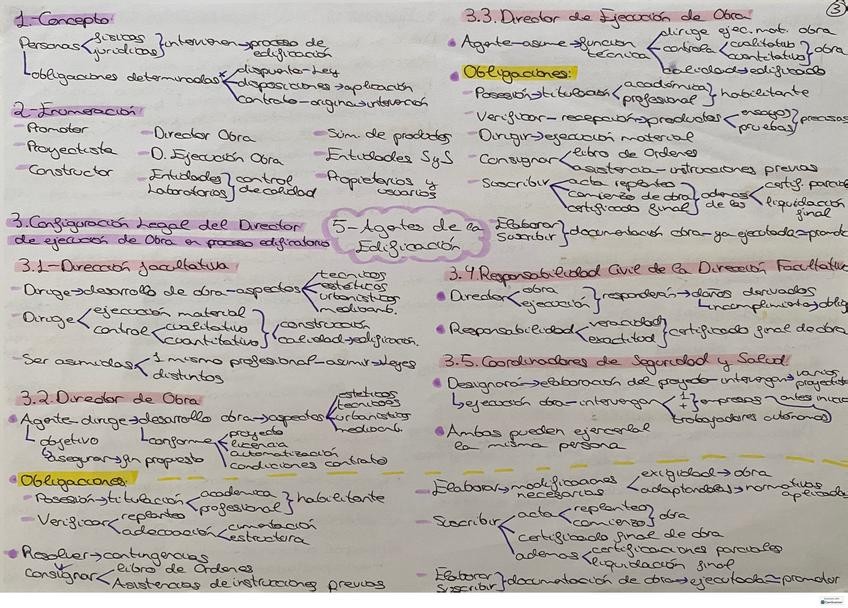 3
1.-Concepto
Personas físicas jurídicas intervienen proceso de edificación
obligaciones determinadas dispuesto-Ley
disposiciones aplicación
contrato-origina intervención
2-Enumeración
-Promotor
-Proyectista
-Constructor
-Director Obra
-D. Ejecución Obra
-Entidades Laboratorios control de calidad
-Sum. de productos
-Entidades SyS
-Propietarios y usuarios
3.Configuración Legal del Director
de ejecución de Obra en proceso edificatorio
5-Agentes de la
Edificación
3.1-Dirección facultativa
-Dirige desarrollo de obra-aspectos técnicos
estéticos
urbanísticos
medioamb.
-Dirige ejecución material
control cualitativo
cuantitativo
construcción
calidad edificación.
-Ser asumidas 1 mismo profesional-asumir Leyes
distintos
3.2.Director de Obra
Agente-dirige desarrollo obra aspectos estéticos
técnicos
urbanísticos
medioamb.
objetivo
asegurar fin propuesto
conforme proyecto
licencia
condiciones contrato
Obligaciones:
-Posesión titulación académica
profesional habilitante
-Verificar replanteo
adecuación cimentación
estructura
Resolver contingencias
consignar libro de Ordenes
Asistencias de instrucciones previas
3.3.Director de Ejecución de Obra
Agente-asume función técnica dirige ejec. mat. obra
controla cualitativo
cuantitativo obra
calidad edificado
Obligaciones:
-Posesión titulación académica
profesional habilitante
-Verificar-recepción productos ensayos
pruebas precisas
-Dirigir ejecución material
-Consignar libro de Ordenes
asistencia-instrucciones previas
-Suscribir acta replanteo
comienzo de obra
certificado final
además de las certif. parcial
liquidación final
-Elaborar
Suscribir documentación obra-ya ejecutada
3.4.Responsabilidad Civil de la Dirección Facultativa
Director obra
ejecución responderán daños derivados
incumplimiento
Responsabilidad veracidad
exactitud certificado final de obra
3.5.Coordinadores de Seguridad y Salud
Designará elaboración del proyecto-intervengan varios
ejecución obra-intervengan 1
+ empresas antes inicio
trabajadores autónomos
Ambas pueden ejercerla
la misma persona
-Elaborar modificaciones necesarias exigidad obra
adaptándolas normativas
-Suscribir acta replanteo
comienzo obra
certificado final de obra
además certificaciones parciales
liquidación final
-Elaborar
Suscribir documentación de obra ejecutada promotor